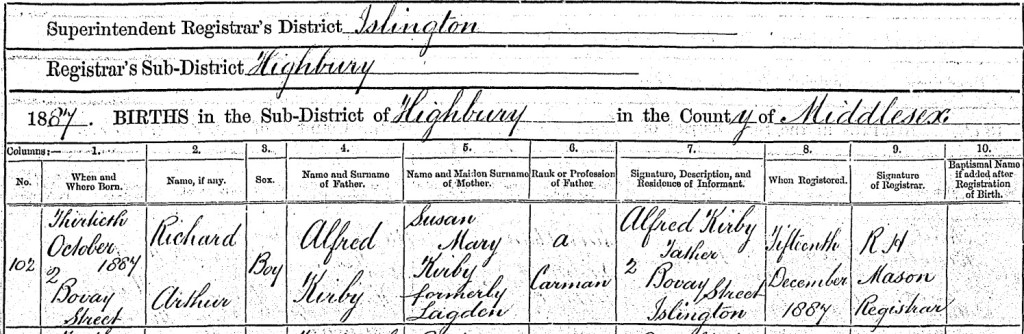 Superintendent Registrar's District Islington
Registrar's Sub-District Highbury
1887. BIRTHS in the Sub-District of Highbury in the County of Middlesex
Columns:— 1. 2. 3. 4. 5. 6. 7. 8. 9. 10.
No. When and Where Born. Name, if any. Sex. Name and Surname of Father. Name and Maiden Surname of Mother. Rank or Profession of Father Signature, Description, and Residence of Informant. When Registered. Signature of Registrar. Baptismal Name if added after Registration of Birth.
102
Thirtieth
October
1887
2
Bovay
Street
Richard
Arthur
Boy
Alfred
Kirby
Susan
Mary
Kirby
formerly
Lagden
a
Carman
Alfred Kirby
Father
2
Bovay Street
Islington
Fifteenth
December
1887
R H
Mason
Registrar